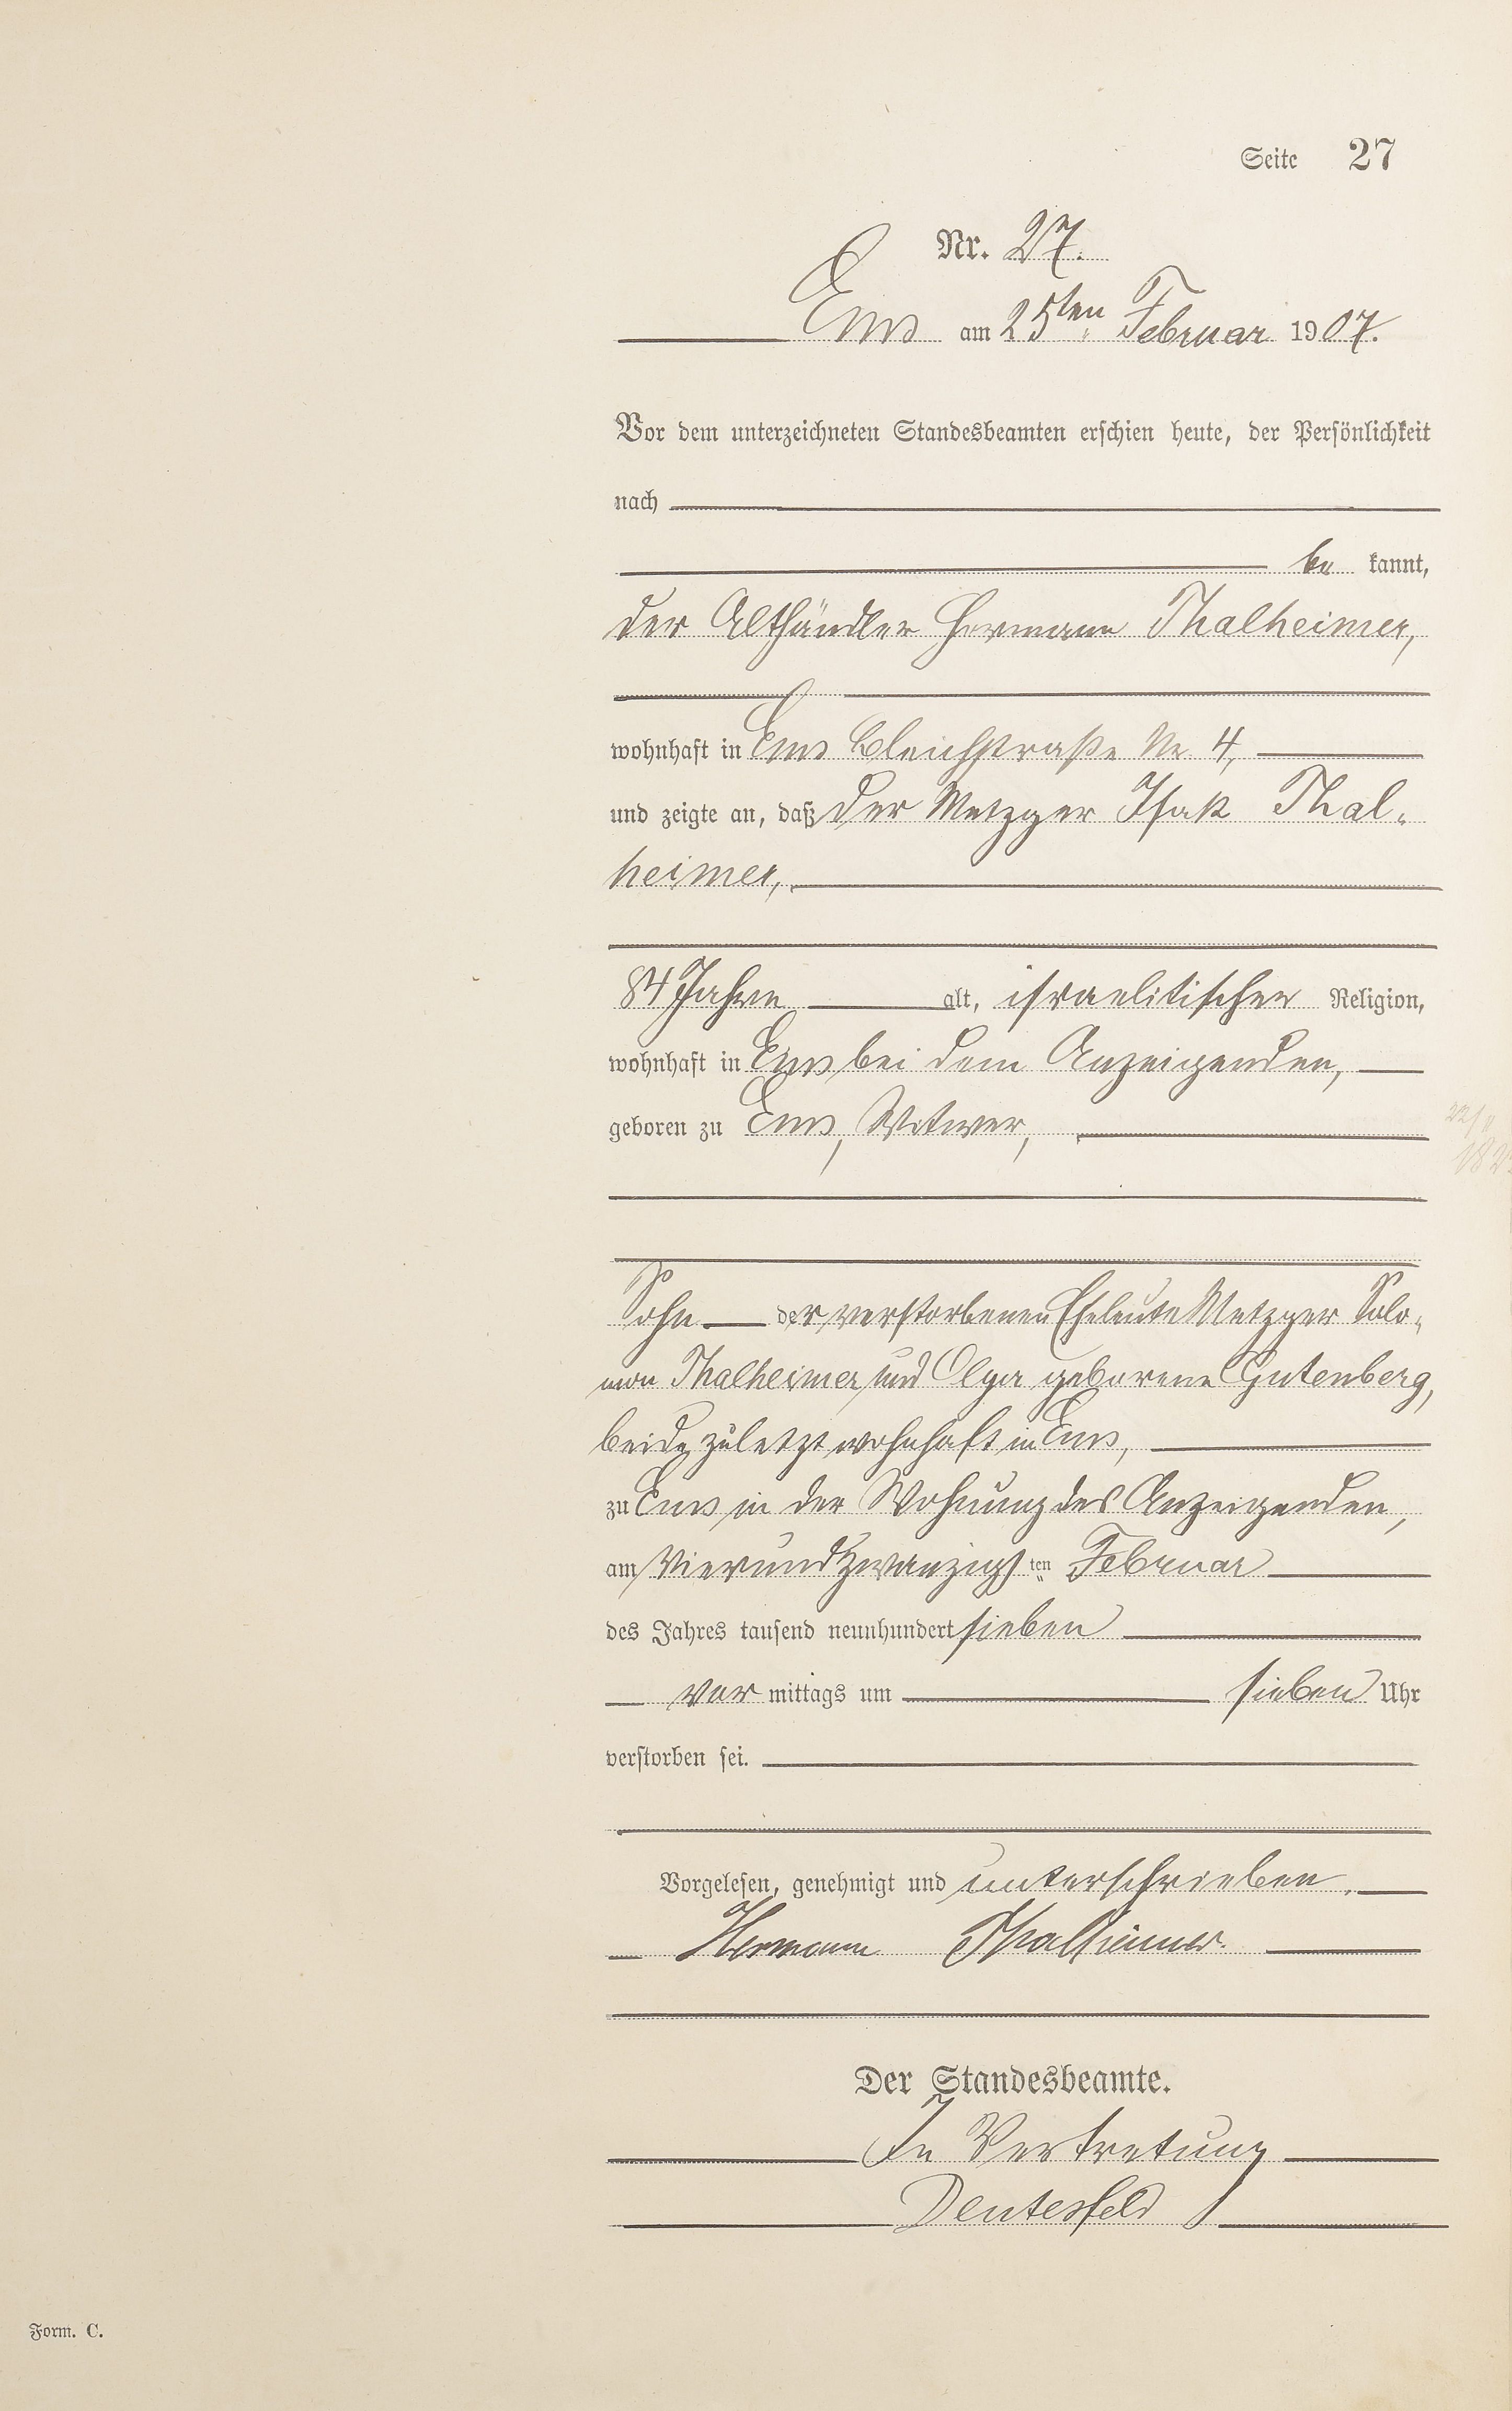 Seite 27
Nr. 27.
Ems am 25ten Februar 1907.
Vor dem unterzeichneten Standesbeamten erschien heute, der Persönlichkeit
nach
be kannt,
der Althändler Hermann Thalheimer,
wohnhaft in Ems Bleichstraße Nr. 4,
und zeigte an, daß der Metzger Isak Thal-
heimer,
84 Jahre alt, israelitischer Religion,
wohnhaft in Ems bei dem Anzeigenden,
geboren zu Ems, Witwer,
22/11
Sohn der verstorbenen Eheleute Metzger Solo-
mon Thalheimer und Olga geborene Gutenberg,
beide zuletzt wohnhaft in Ems,
zu Ems in der Wohnung des Anzeigenden,
am Vierundzwanzigsten Februar
des Jahres tausend neunhundert sieben
vor mittags um sieben Uhr
verstorben sei.
Vorgelesen, genehmigt und unterschrieben.
Hermann Thalheimer.
Der Standesbeamte.
In Vertretung
Dentesfeld
Form. C.